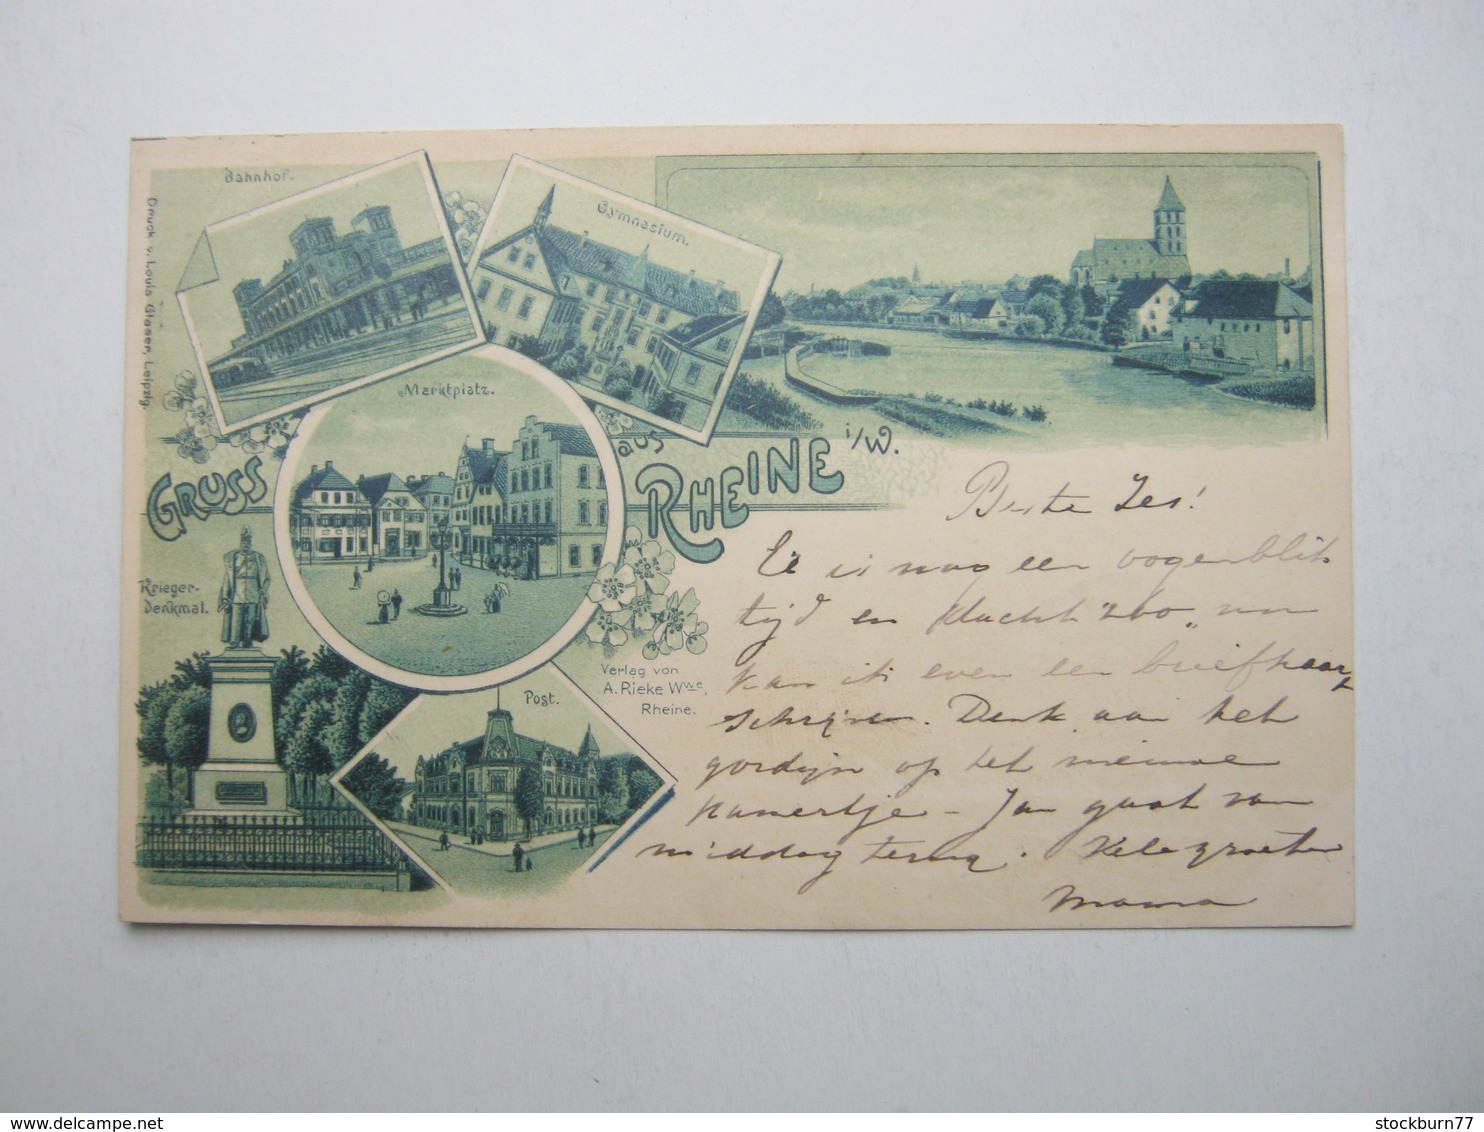 Bahnhof.
Gymnasium.
Marktplatz.
Druck v. Louis Glaser, Leipzig.
GRUSS
aus
RHEINE i/W.
Krieger-
Denkmal.
Post.
Verlag von
A. Rieke Wwe,
Rheine.
Beste Jes!
Er is nog een oogenblik
tijd en dacht zoo, nu
kan ik even een briefkaart
schrijven. Denk aan het
gordijn op het nieuwe
kamertje – Jan gaat van
middag terug. Vele groeten
Mama
delcampe.net
stockburn77